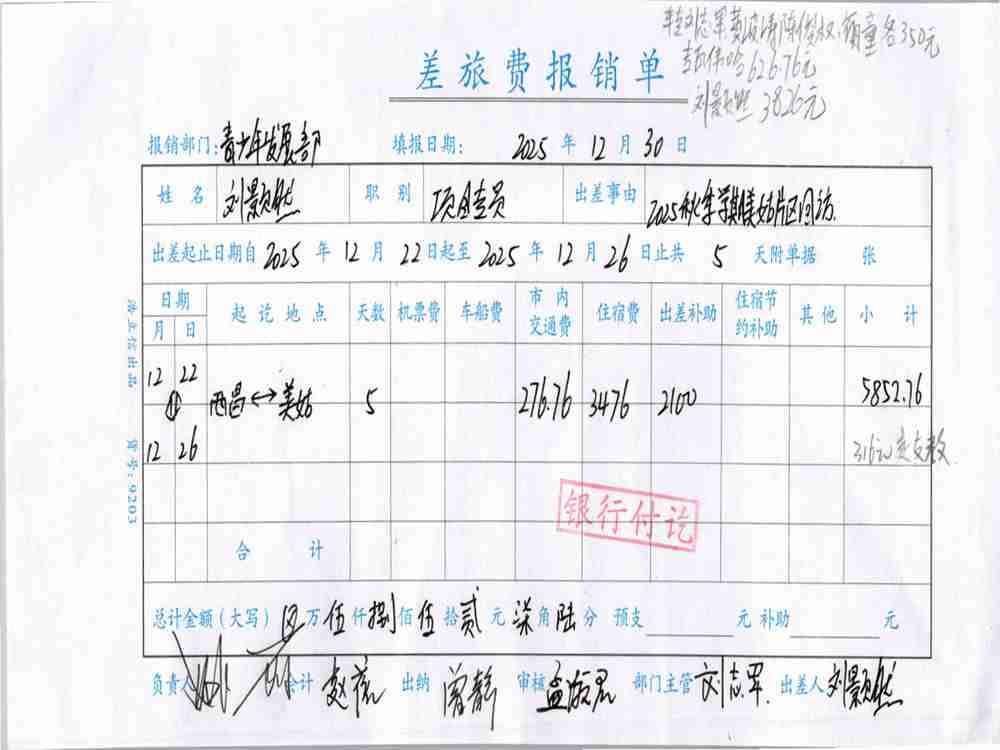 各350元
626.76元
刘景然 3826元
差旅费报销单
报销部门：青少年发展部 填报日期： 2025 年 12 月 30 日
姓名 刘景然 职别 项目专员 出差事由 2025秋季学期美姑片区回访.
出差起止日期自 2025 年 12 月 22 日起至 2025 年 12 月 26 日止共 5 天附单据 张
日期 起讫地点 天数 机票费 车船费 市内交通费 住宿费 出差补助 住宿节约补助 其他 小计
月 日
12 22
西昌↔美姑 5 276.76 3476 2100 5852.76
12 26
316元
银行付讫
合计
总计金额（大写） 万 伍 仟 捌 佰 伍 拾 贰 元 柒 角 陆 分 预支 元 补助 元
负责人 会计 出纳 曾静 审核 部门主管 刘志军. 出差人 刘景然
货号：9203